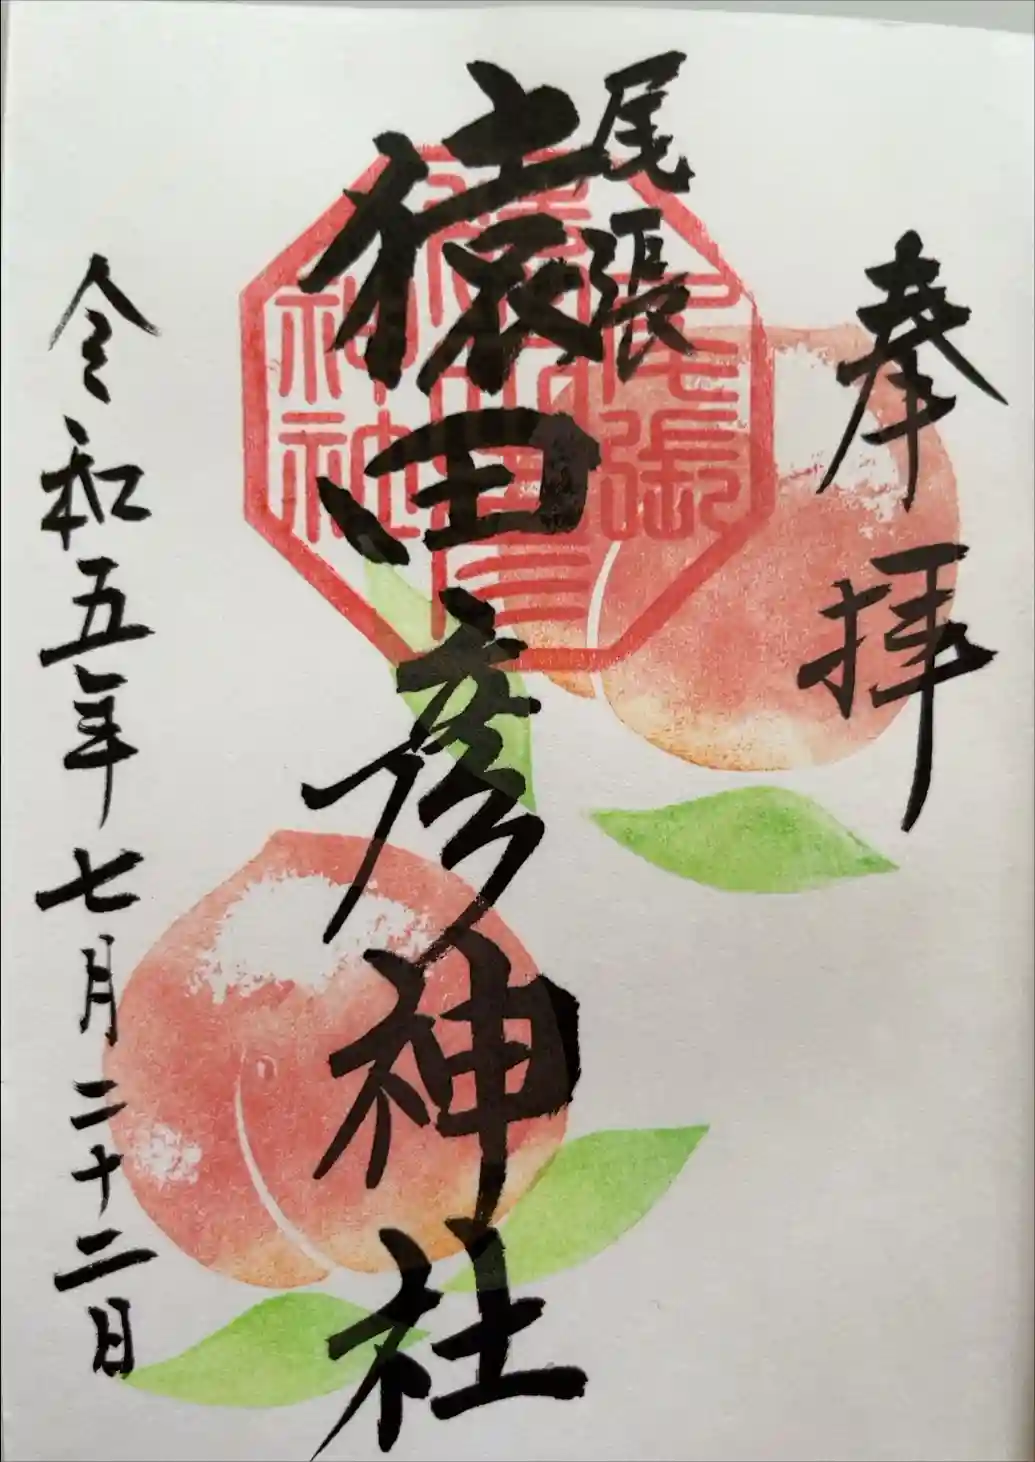 奉拝
尾張
猿田彦神社
尾張
猿田彦
神社
令和五年七月二十二日